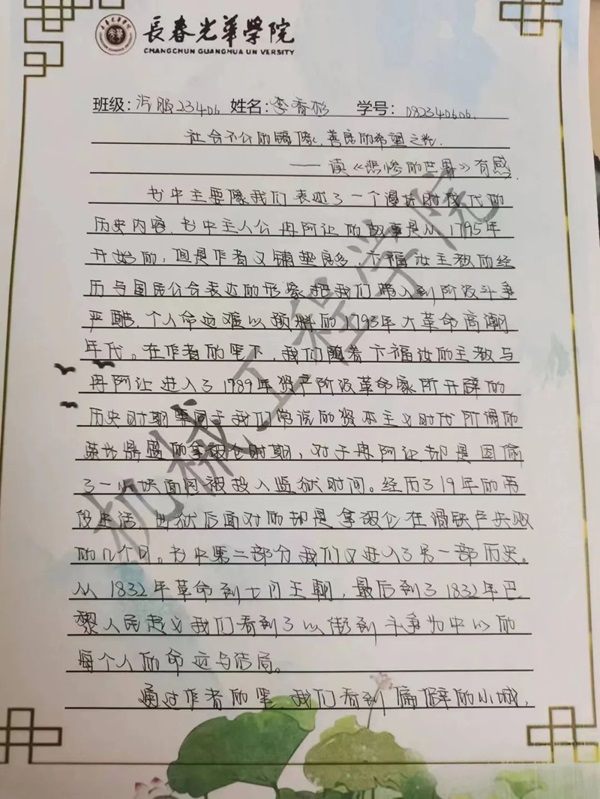 長春光華學院
CHANGCHUN GUANGHUA UN VERSITY
班级:汽服23406 姓名:李香 学号:0323406
社会不公的镯像,善良的希望之光.
——读《悲惨的世界》有感.
书中主要像我们表述了一个漫长时代的
历史内容.书中主人公冉阿让的故事是从1795年
开始的,但是作者又铺垫良多,卞福汝主教的经
历与国民公会表达的形象把我们带入到阶段斗争
严酷,个人命运难以预料的1793年大革命高潮
年代。在作者的笔下,我们随着卞福汝的主教与
冉阿让进入了1789年资产阶段革命家所开辟的
历史时期等同于我们常说的资本主义时代所谓的
鼎盛的拿破仑时期,对于冉阿让却是因偷
了一小块面包被投入监狱时间。经历了19年的苦
役生活,出狱后面对的却是拿破仑在滑铁卢失败
的几个月。书中第二部分我们又进入了另一部历史.
从1832年革命到七月王朝,最后到了1832年巴
黎人民起义我们看到了以街到斗争为中心的
每个人的命运与结局。
通过作者的笔 我们看到偏僻的小城,
机械工程学院